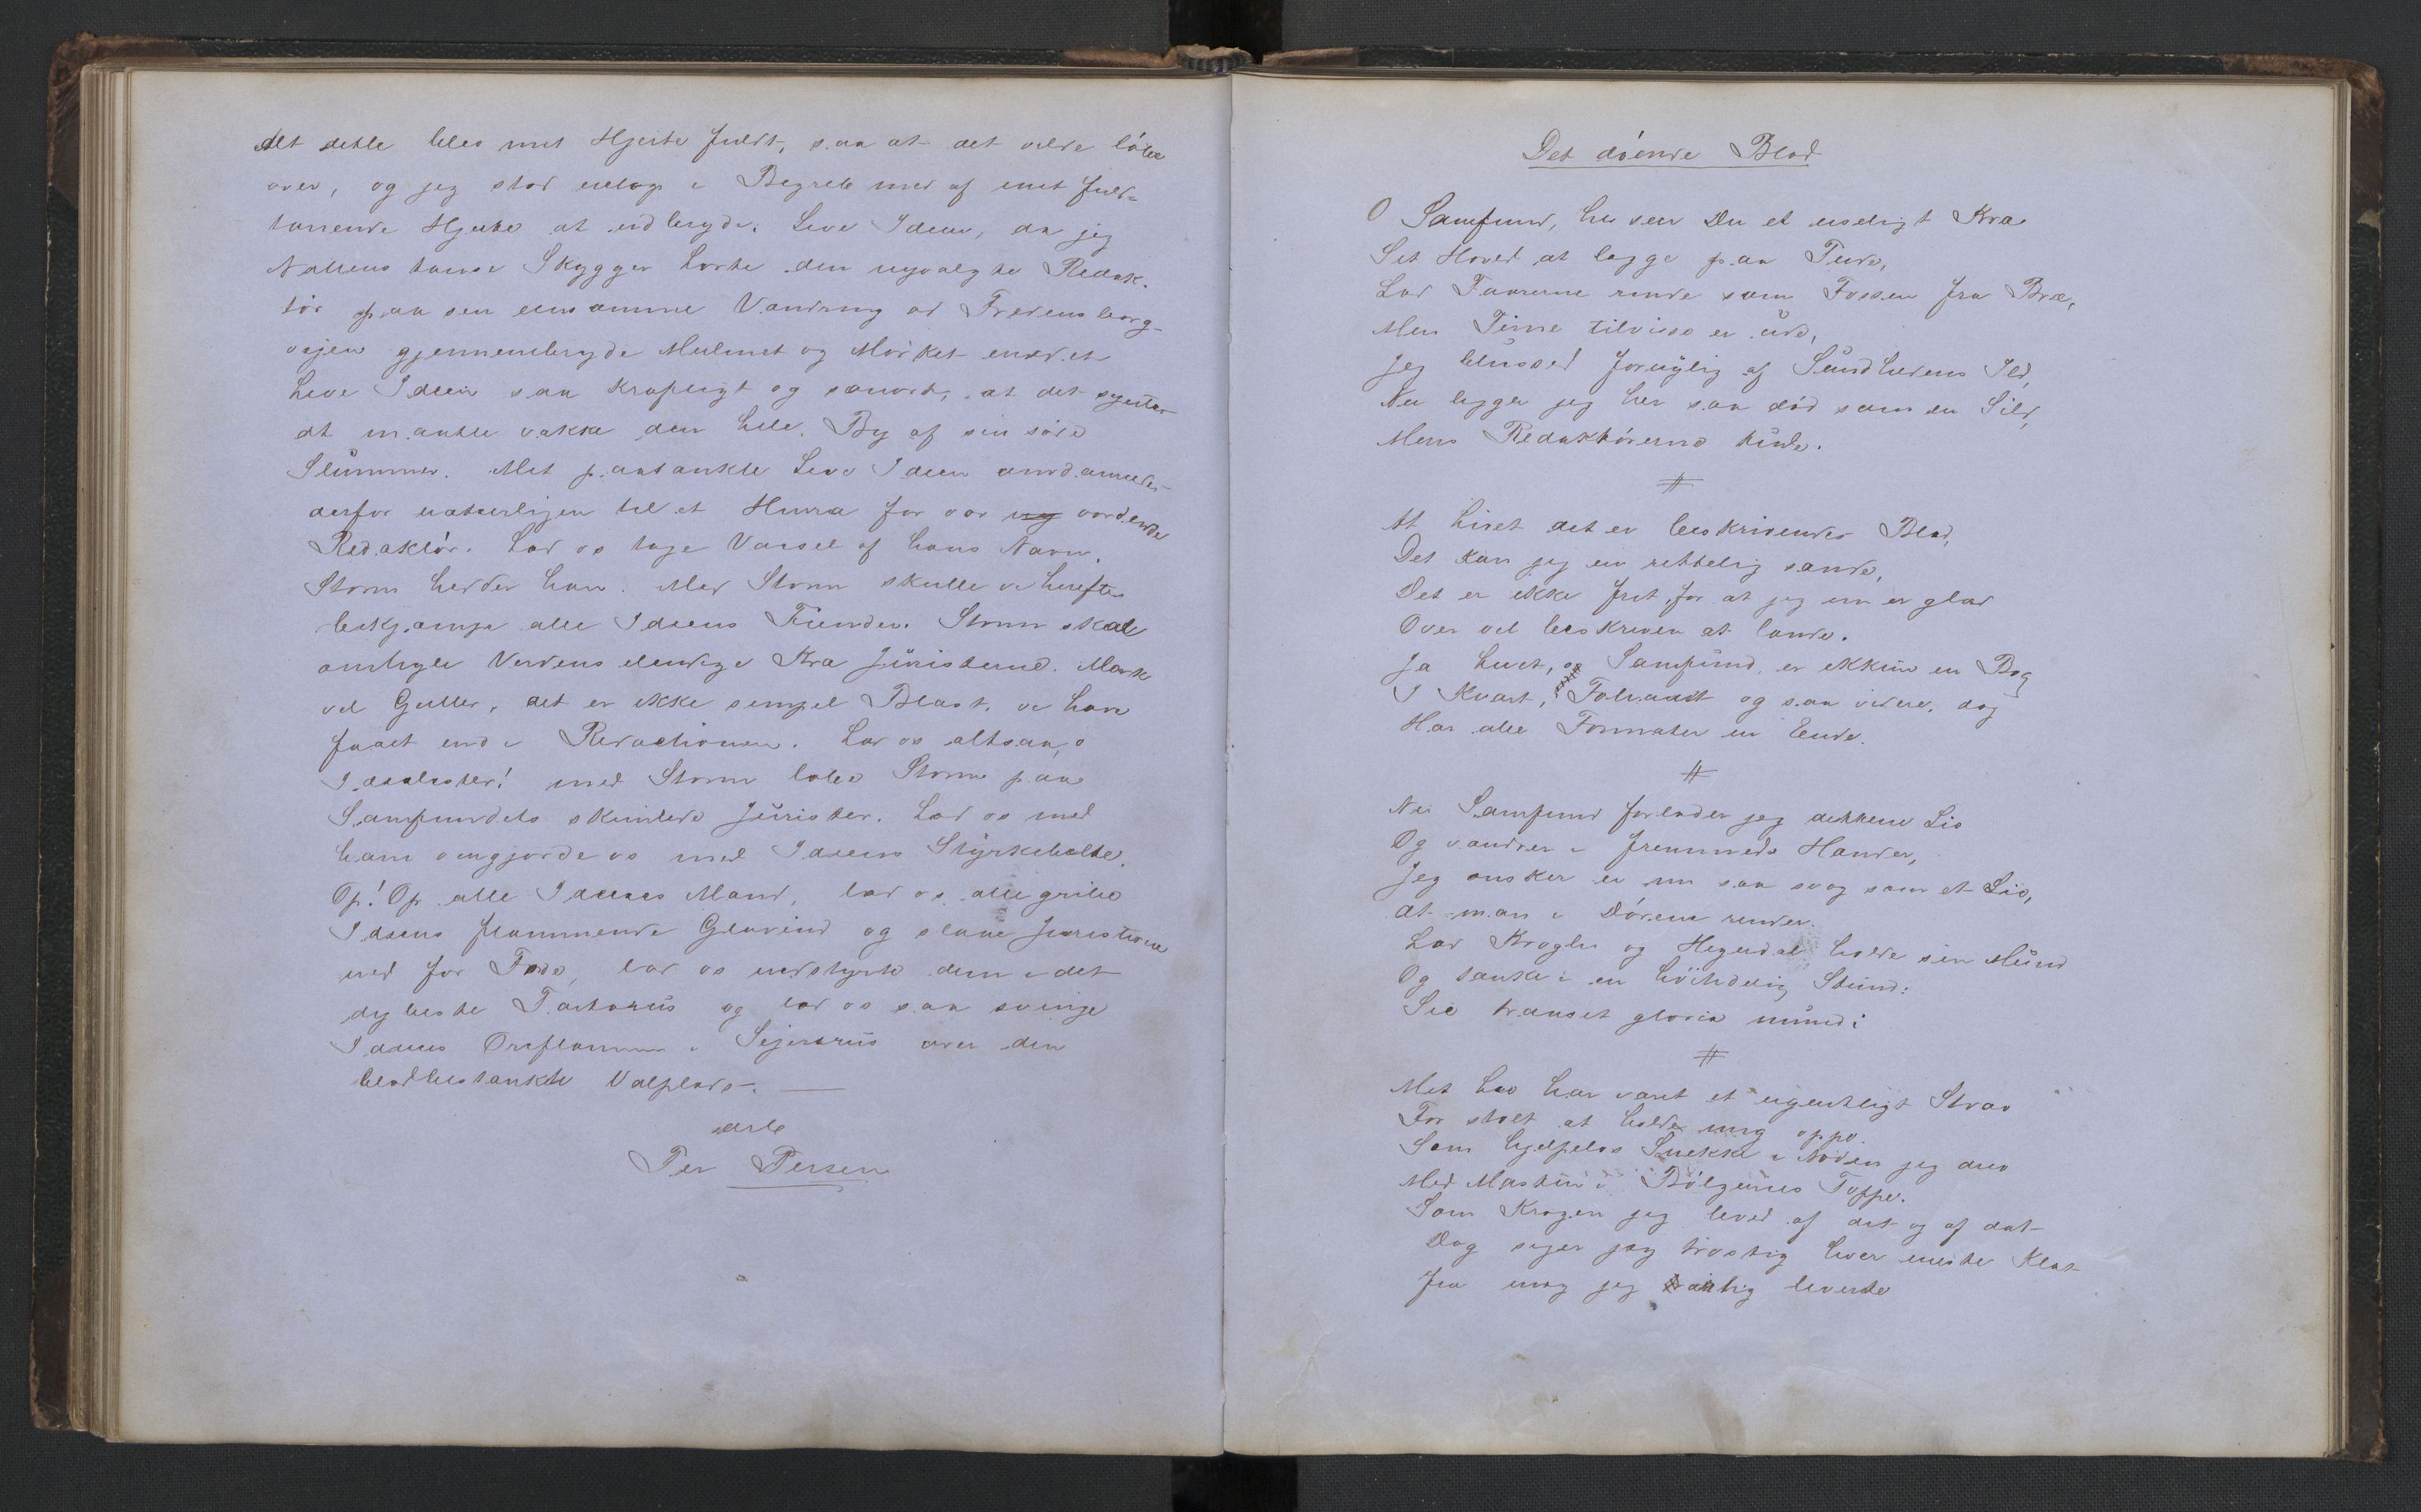 Alt dette blev mit Hjerte fuldt, saa at det vilde løbe
over, og jeg stod netop i Begreb med af mit fuld-
tonende Hjerte at udbryde: Leve Ideen, da jeg
Nattens tause Skygger hørte den nyvalgte Redak-
tør paa sen eensomme Vandring ad Fredensborg-
vejen gjennembryde Mulmet og Mørket med et
Leve Ideen saa kraftigt og sonort, at det syntes
at maatte vække den hele By af sin søde
Slummer. Mit paatænkte Leve Ideen omdannedes
derfor naturligen til et Hurra for vor ny vordende
Redaktør. Lad os tage Varsel af hans Navn.
Storm hedder han. Med Storm skulle vi herefter
bekjæmpe alle Ideens Fiender. Storm skal
omhyle Verdens elendige Kræ Juristerne. Mærk
vel Gutter, det er ikke simpel Blæst, vi have
faaet ind i Redactionen. Lad os altsaa, o
Idealister! med Storm løbe Storm paa
Samfundets skimlede Jurister. Lad os med
ham omgjorde os med Ideens Styrkebælte.
Op! Op alle Ideens Mænd, lad os alle gribe
Ideens flammende Glavind og slaae Juristerne
ned for Fode, lad os nedstyrte dem i det
dybeste Tartarus og lad os saa svinge
Ideens Oriflamme i Sejersruus over den
blodbestænkte Valplads.
Per Persen
Det døende Blad
O Samfund, her seer Du et useligt Kræ
Sit Hoved at lægge paa Pude,
Lad Taarerne rinde som Fossen fra Bræ,
Men Time tilvisse er ude,
Jeg blussed forøvrig af Sundhedens Ild,
Nu ligger jeg her saa død som en Sild,
Mens Redaktørerne tude.
#
At Livet det er beskrivendes Blad,
Det kan jeg nu rettelig sande,
Det er ikke frit for at jeg nu er glad
Over vel beskreven at lande.
Ja Livet, o Samfund, er ikkun en Bog
I Kvart, Foliant og saa videre, dog
Har alle Formater en Ende.
#
Nu Samfund forlader jeg dettene Liv
Og vandrer i fremmede Hænder,
Jeg ønsker er nu saa svag som et Siv,
At man i Dørene render.
Lad Krogh og Hegerdal holde sin Mund
Og tænke i en høitidelig Stund:
Sic transit gloria mundi
#
Mit Liv har været et egentligt Stræv
For stolt at holde mig oppe.
Som hjelpeløs Snekke i Nøden jeg drev
Med Masten i Bølgernes Toppe.
Som Kragen jeg leved af dit og af dat
Dog siger jeg trøstig hver eneste Klat
Fra mig jeg ærlig leverte